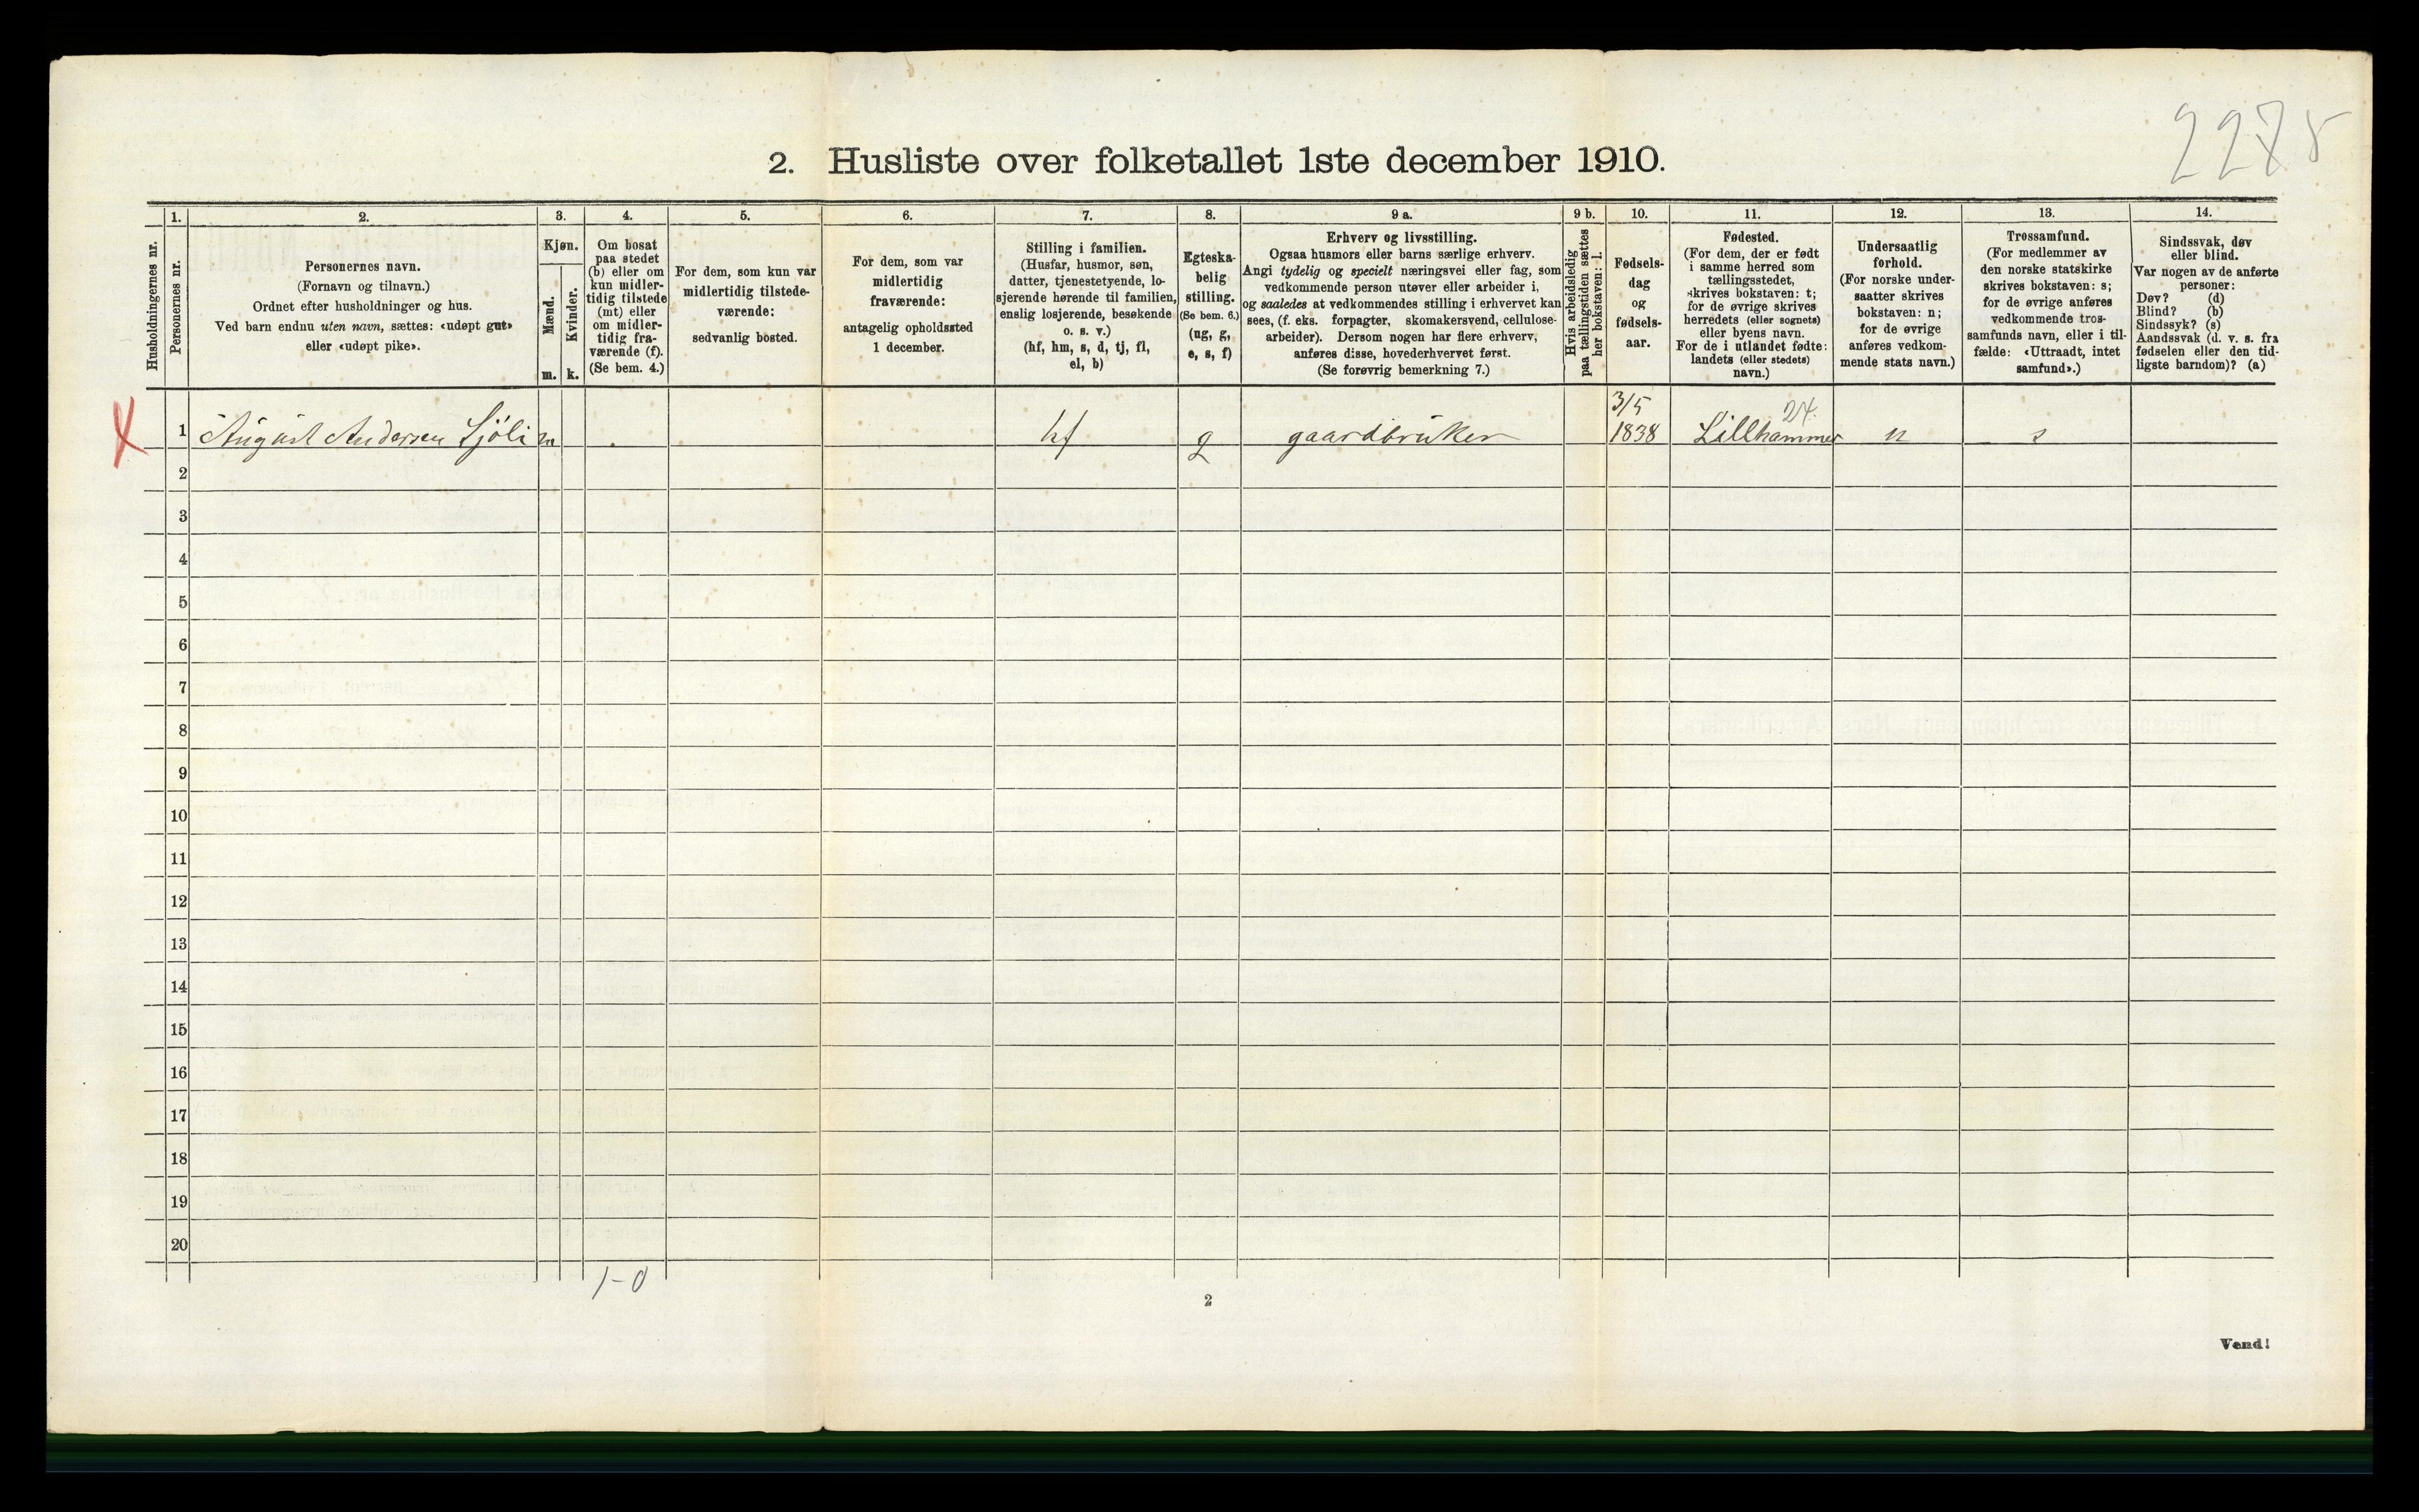 2275
2. Husliste over folketallet 1ste december 1910.
Husholdningernes nr.
1.
Personernes nr.
2.
Personernes navn.
(Fornavn og tilnavn.)
Ordnet efter husholdninger og hus.
Ved barn endnu uten navn, sættes: «udøpt gut»
eller «udøpt pike».
3.
Kjøn.
Mænd.
Kvinder.
m. k.
4.
Om bosat
paa stedet
(b) eller om
kun midler-
tidig tilstede
(mt) eller
om midler-
tidig fra-
værende (f).
(Se bem. 4.)
5.
For dem, som kun var
midlertidig tilstede-
værende:
sedvanlig bosted.
6.
For dem, som var
midlertidig
fraværende:
antagelig opholdssted
1 december.
7.
Stilling i familien.
(Husfar, husmor, søn,
datter, tjenestetyende, lo-
sjerende hørende til familien,
enslig losjerende, besøkende
o. s. v.)
(hf, hm, s, d, tj, fl,
el, b)
8.
Egteska-
belig
stilling.
(Se bem. 6.)
(ug, g,
e, s, f)
9 a.
Erhverv og livsstilling.
Ogsaa husmors eller barns særlige erhverv.
Angi tydelig og specielt næringsvei eller fag, som
vedkommende person utøver eller arbeider i,
og saaledes at vedkommendes stilling i erhvervet kan
sees, (f. eks. forpagter, skomakersvend, cellulose-
arbeider). Dersom nogen har flere erhverv,
anføres disse, hovederhvervet først.
(Se forøvrig bemerkning 7.)
9 b.
Hvis arbeidsledig
paa tællingstiden sættes
her bokstaven: l.
10.
Fødsels-
dag
og
fødsels-
aar.
11.
Fødested.
(For dem, der er født
i samme herred som
tællingsstedet,
skrives bokstaven: t;
for de øvrige skrives
herredets (eller sognets)
eller byens navn.
For de i utlandet fødte:
landets (eller stedets)
navn.)
12.
Undersaatlig
forhold.
(For norske under-
saatter skrives
bokstaven: n;
for de øvrige
anføres vedkom-
mende stats navn.)
13.
Trossamfund.
(For medlemmer av
den norske statskirke
skrives bokstaven: s;
for de øvrige anføres
vedkommende tros-
samfunds navn, eller i til-
fælde: «Uttraadt, intet
samfund».)
14.
Sindssvak, døv
eller blind.
Var nogen av de anførte
personer:
Døv? (d)
Blind? (b)
Sindssyk? (s)
Aandssvak (d. v. s. fra
fødselen eller den tid-
ligste barndom)? (a)
3/5 24.
X 1 August Andersen Sjøli m hf g gaardbruker 1838 Lillhammer n s
2
3
4
5
6
7
8
9
10
11
12
13
14
15
16
17
18
19
20
1-0
2
Vend!